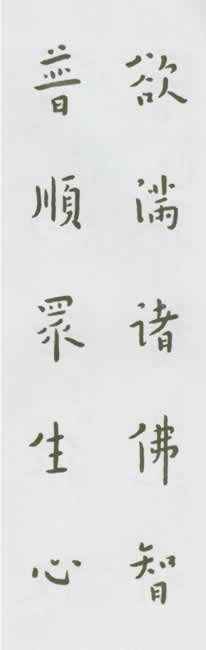 欲满諸佛智
普順眾生心